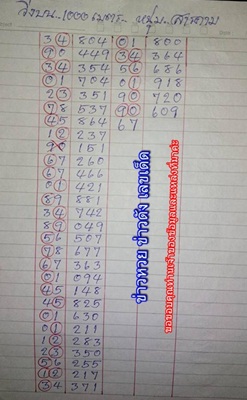 วิ่งบน..1000 เมตร.. หนุ่ม..สาคาม
34 804 01 800
90 449 34 364
34 354 56 686
01 704 01 918
23 351 90 720
78 537 90 609
45 864 67
12 237
90 151
67 260
67 466
01 421
89 881
34 742
89 049
56 507
78 677
67 363
01 094
45 148
45 825
01 630
01 211
12 283
23 350
56 255
12 217
34 371
ข่าวหวย ข่าวดัง เลขเด็ด